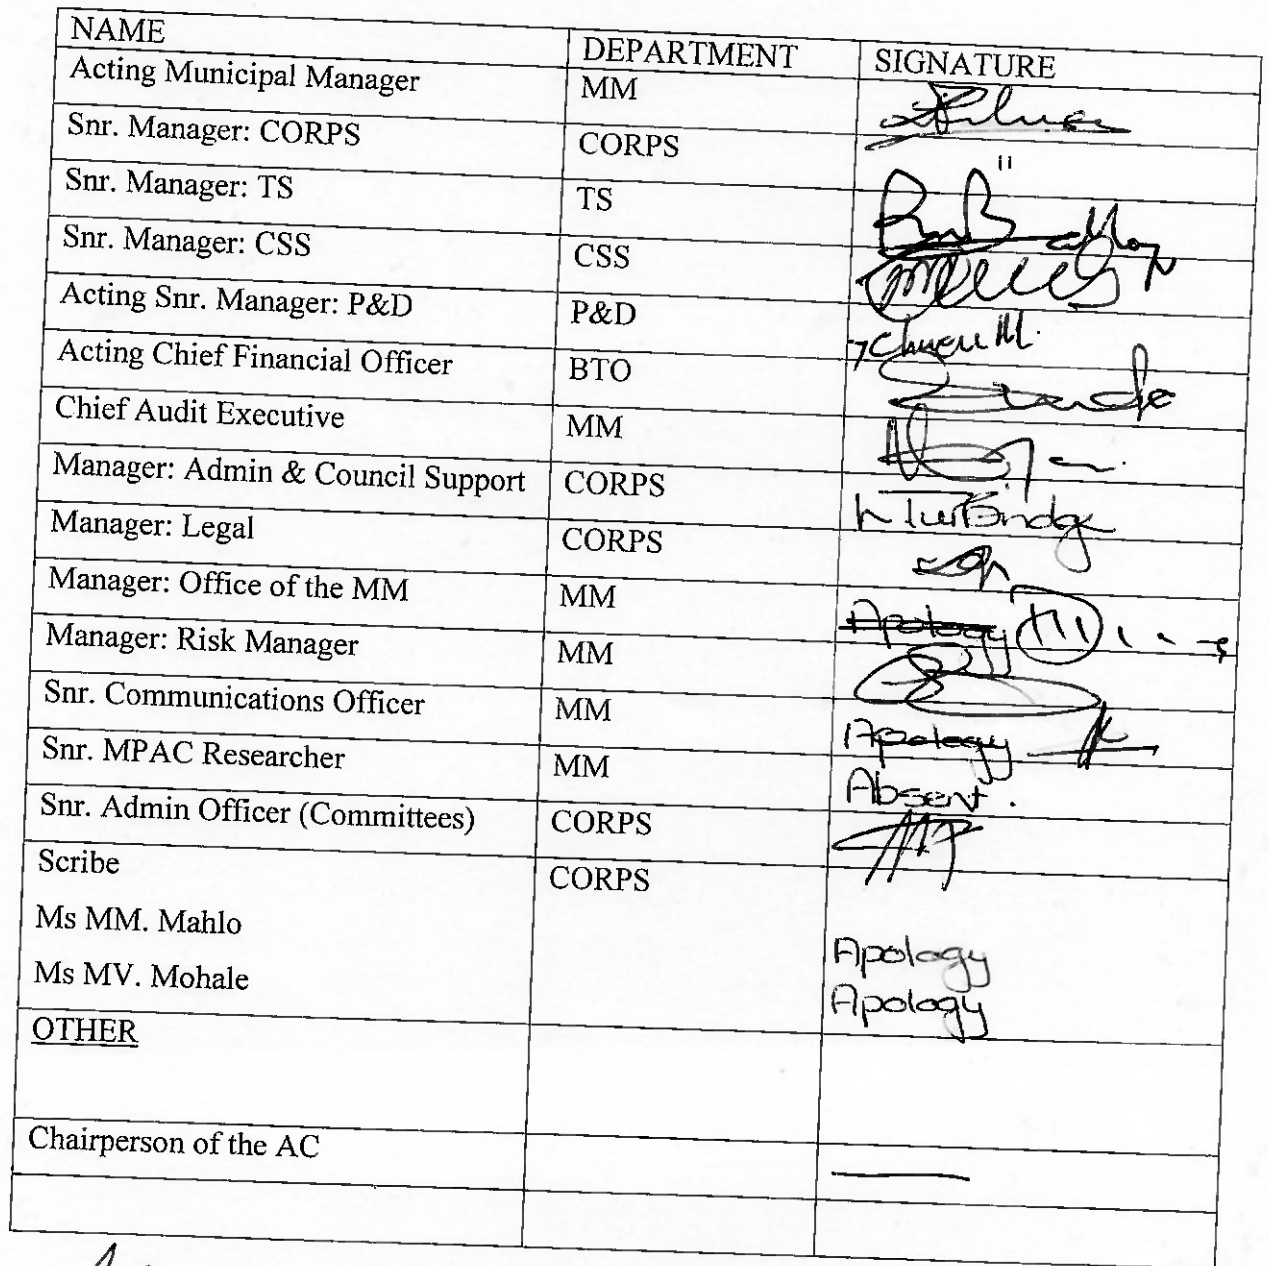 NAME DEPARTMENT SIGNATURE
Acting Municipal Manager MM
Snr. Manager: CORPS CORPS "
Snr. Manager: TS TS
Snr. Manager: CSS CSS
Acting Snr. Manager: P&D P&D
Acting Chief Financial Officer BTO
Chief Audit Executive MM
Manager: Admin & Council Support CORPS
Manager: Legal CORPS
Manager: Office of the MM MM Apology
Manager: Risk Manager MM
Snr. Communications Officer MM Apology
Snr. MPAC Researcher MM Absent.
Snr. Admin Officer (Committees) CORPS
Scribe CORPS
Ms MM. Mahlo Apology
Ms MV. Mohale Apology
OTHER
Chairperson of the AC